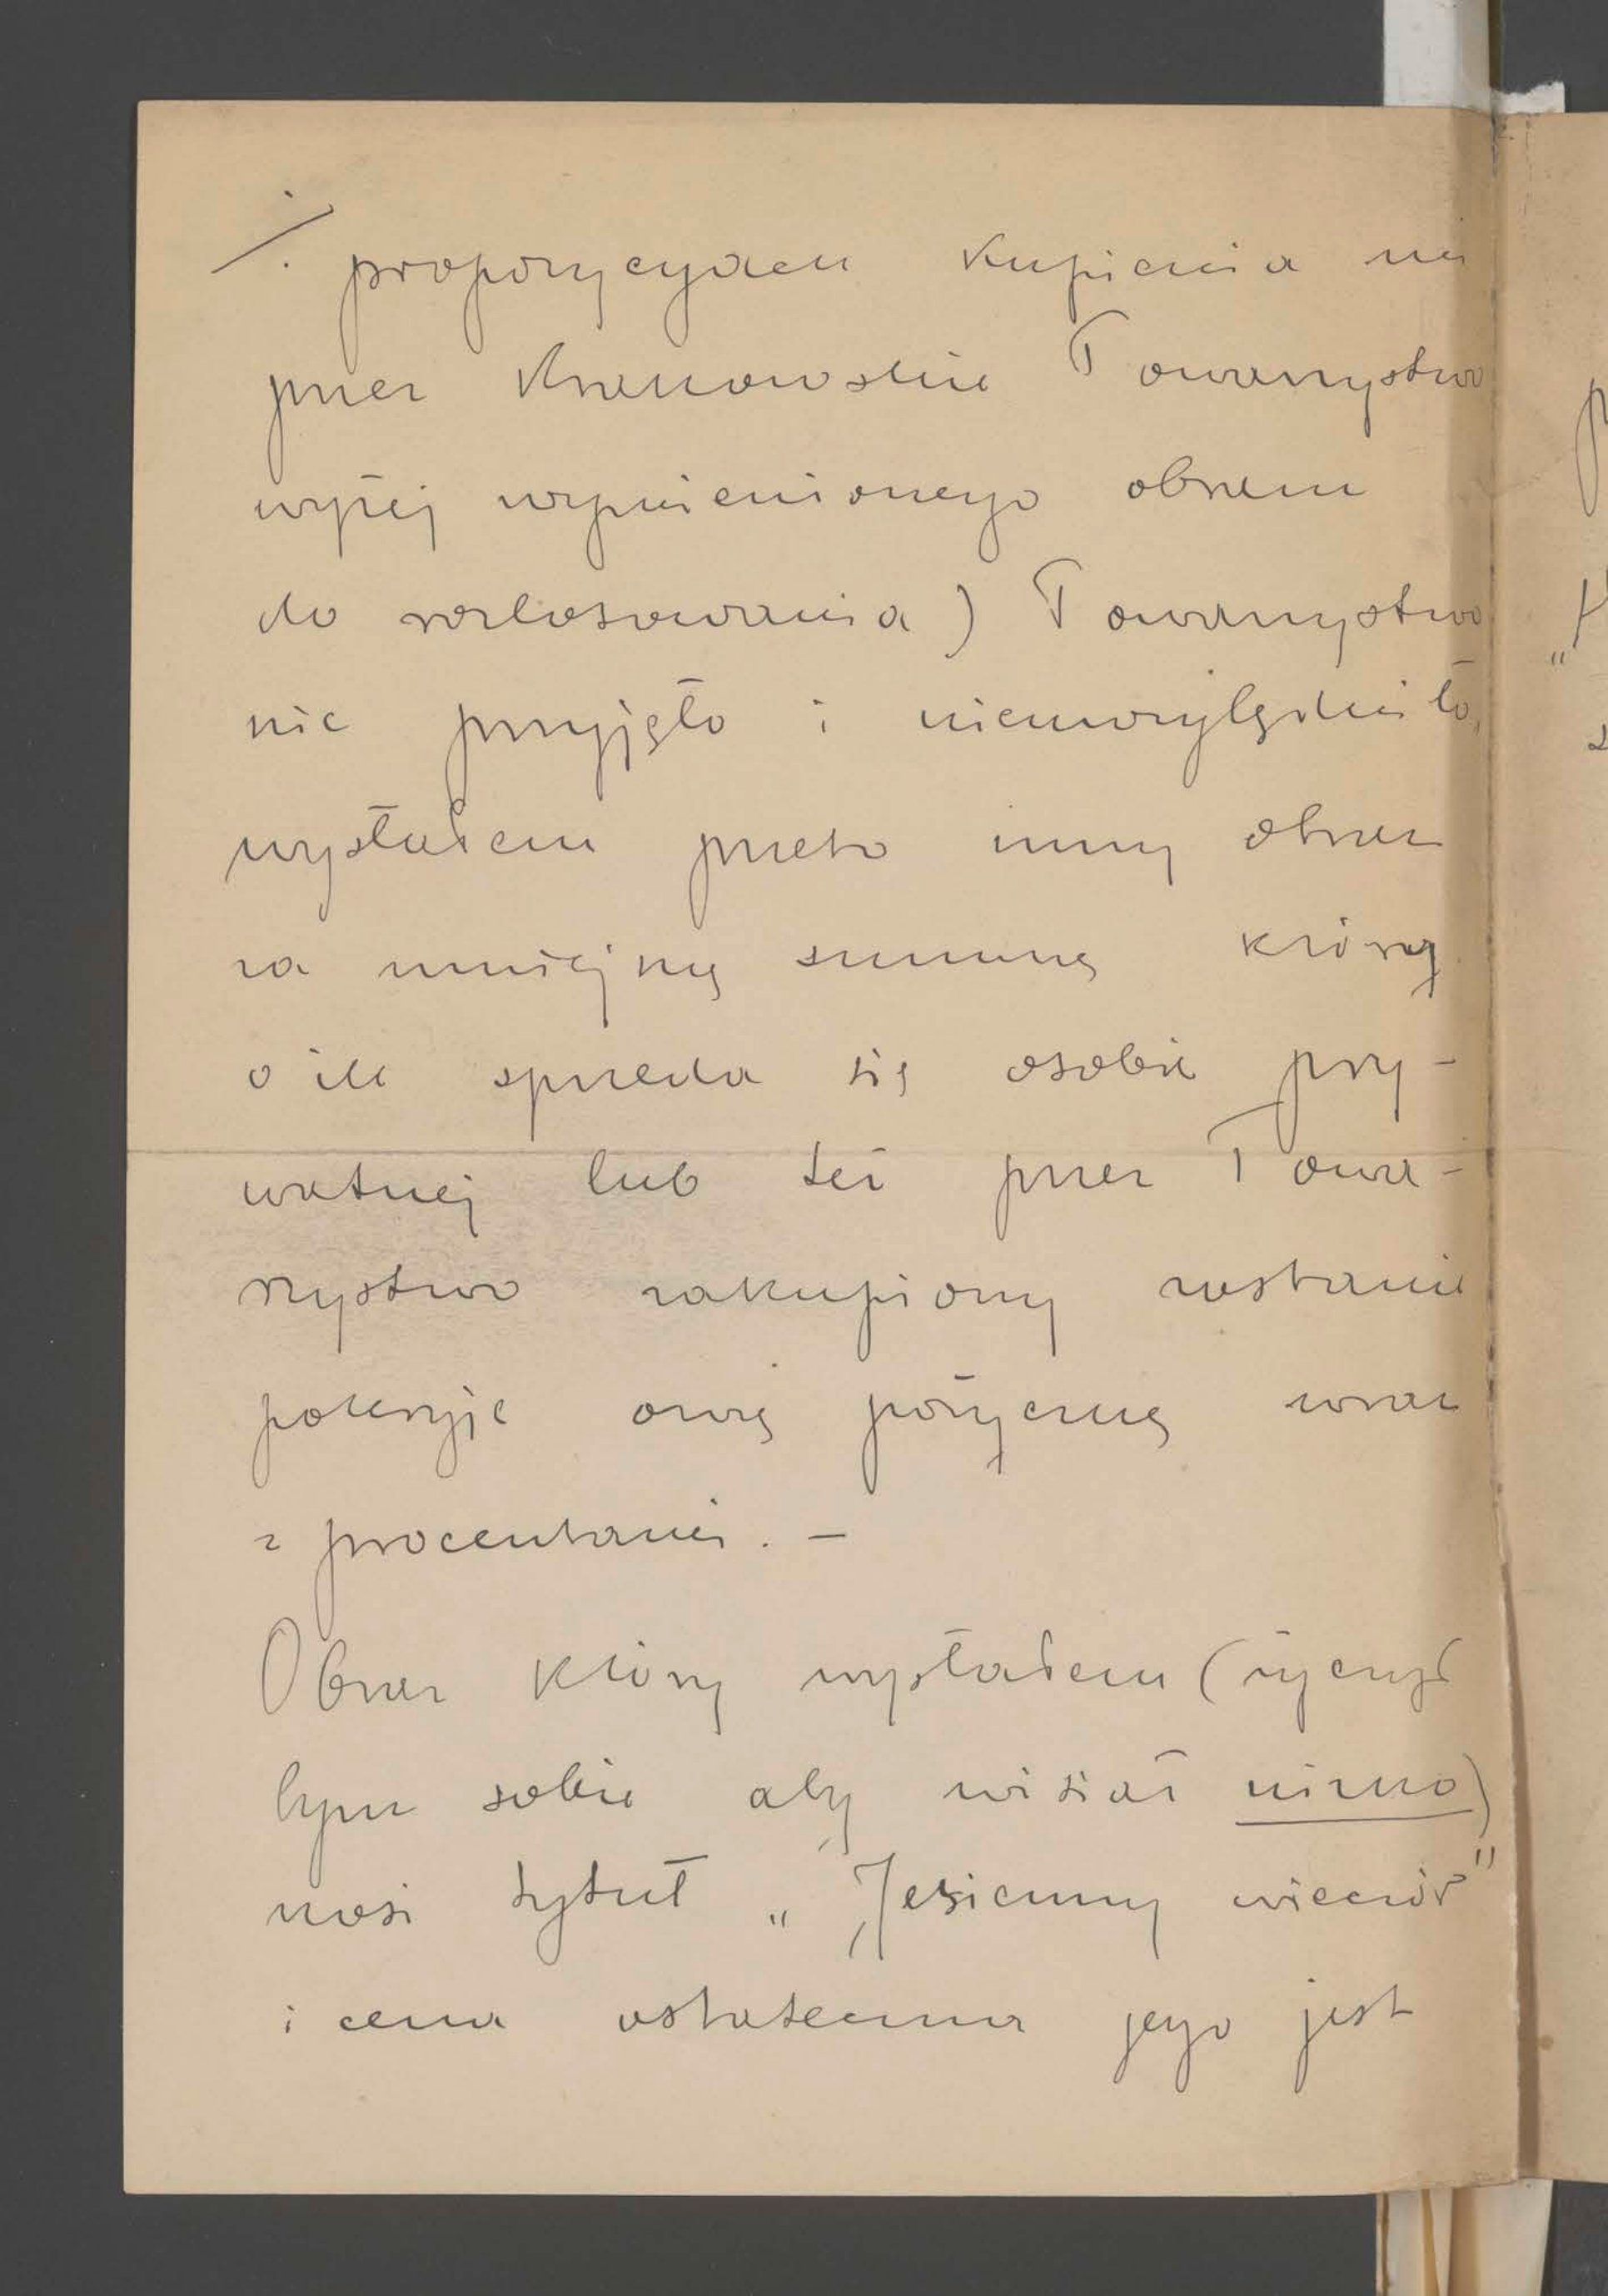 ./. propozycyach kupienia mi
przez Krakowskie Towarzystwo
wyżej wymienionego obrazu
do rozlosowania) Towarzystwo
nie przyjęło i nieuwzględniło,
wysłałem przeto inny obraz
za mniejszą summę który
o ile sprzeda się osobie pry-
watnej lub też przez Towa-
rzystwo zakupiony zostanie
pokryje ową pożyczkę wraz
z procentami. –
Obraz który wysłałem (życzył
bym sobie aby wisiał nizko)
nosi tytuł „Jesienny wieczór"
i cena ostateczna jego jest